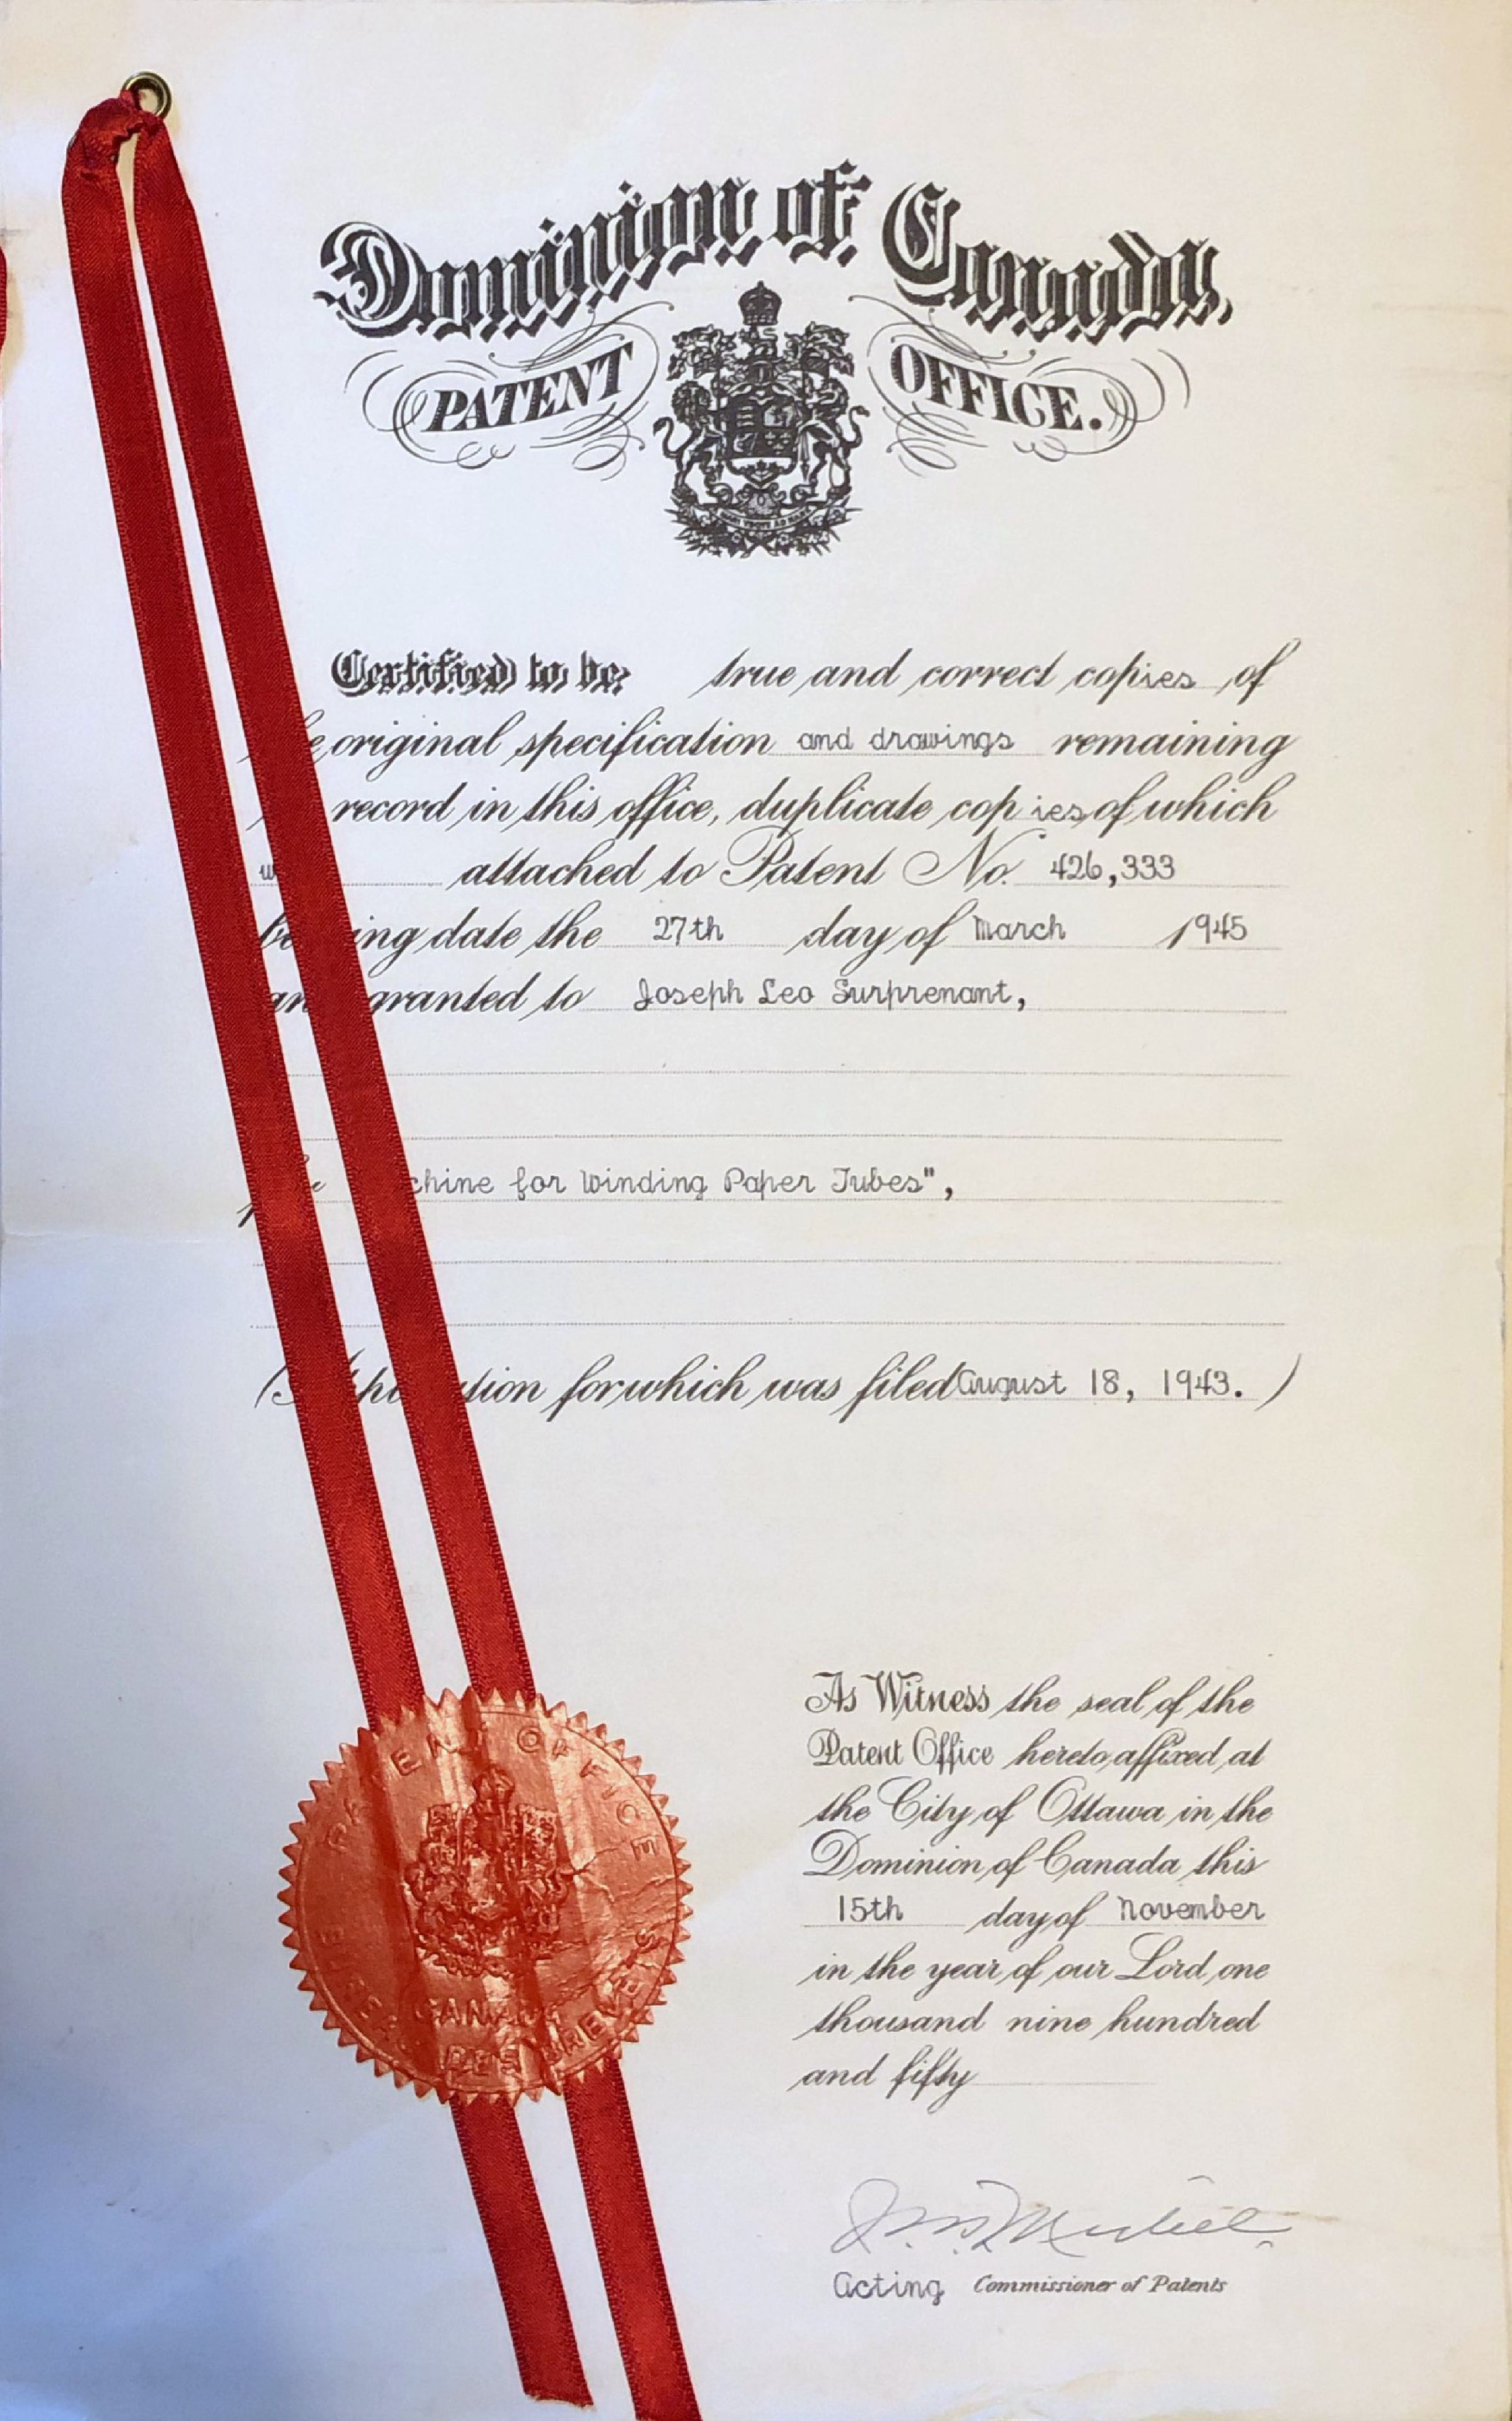 Dominion of Canada,
PATENT OFFICE.
Certified to be true and correct copies of
original specification and drawings remaining
record in this office, duplicate copies of which
attached to Patent No. 426,333
ing date the 27th day of March 1945
granted to Joseph Leo Surprenant,
chine for Winding Paper Tubes",
tion for which was filed August 18, 1943.)
PATENT OFFICE
CANADA
DES BREVETS
As Witness the seal of the
Patent Office hereto affixed at
the City of Ottawa in the
Dominion of Canada this
15th day of November
in the year of our Lord one
thousand nine hundred
and fifty
Acting Commissioner of Patents